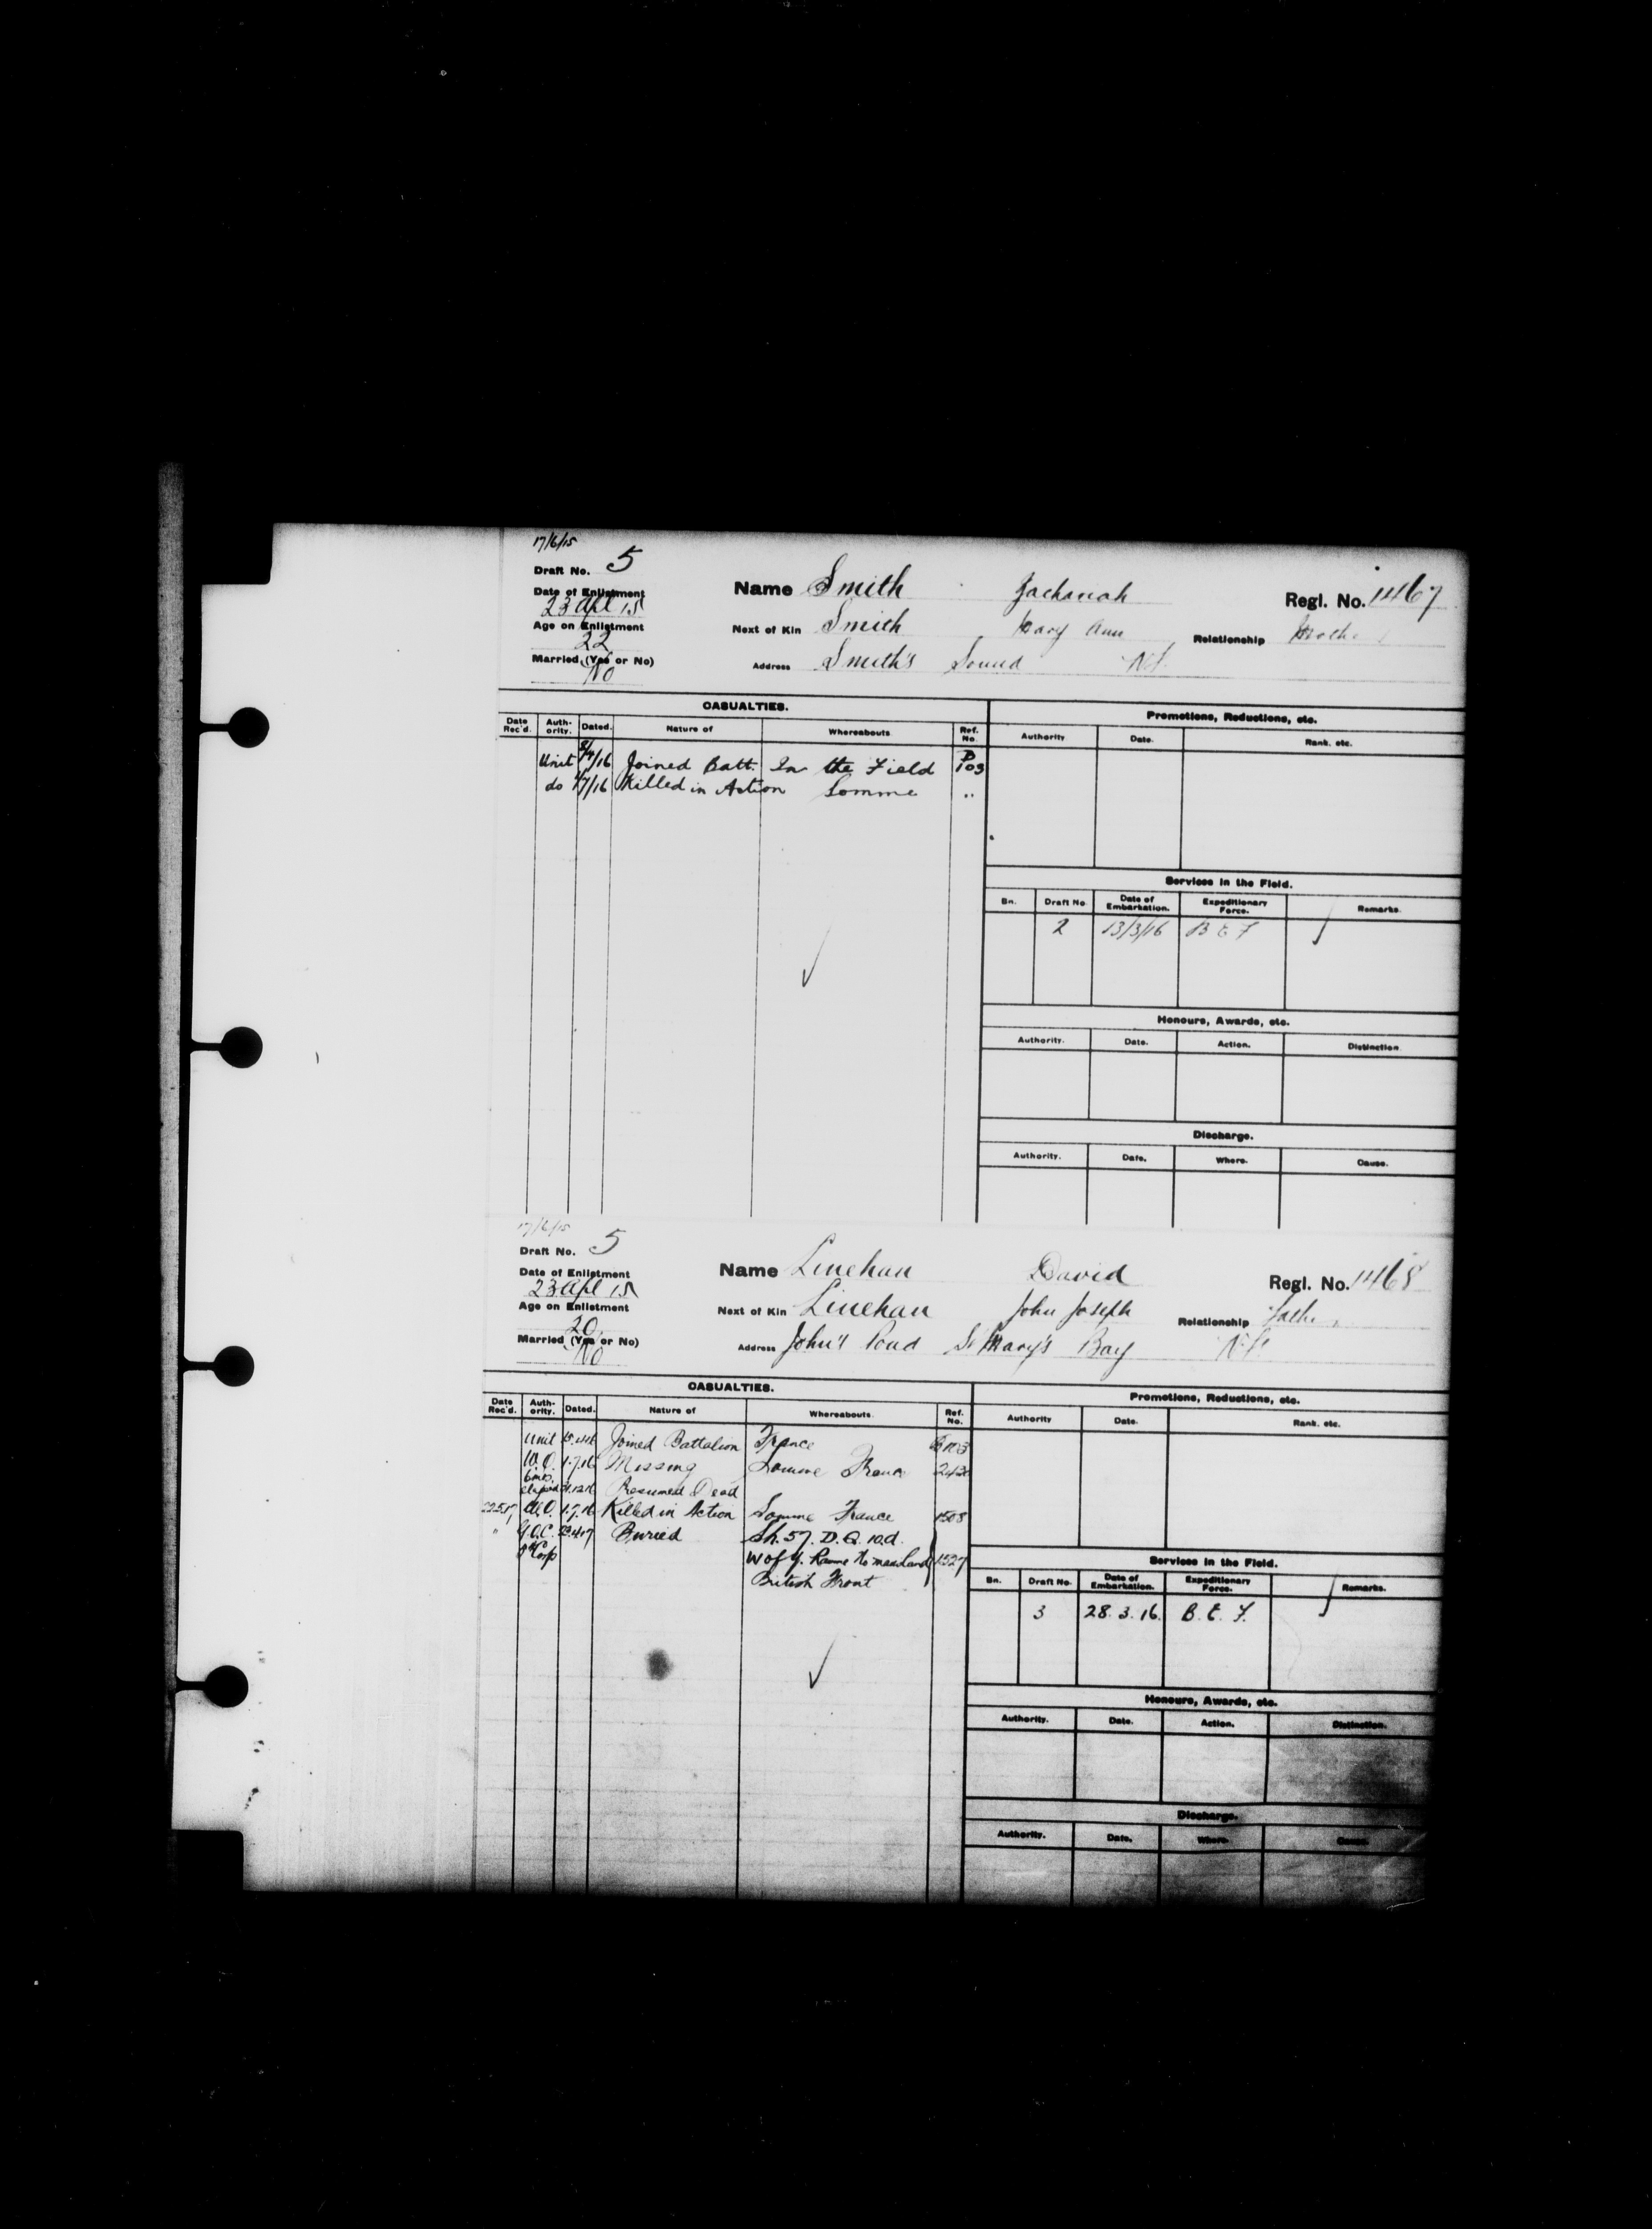 17/6/15
Draft No. 5
Date of Enlistment
23 Apl 15
Age on Enlistment
22
Married (Yes or No)
No
Name Smith Zachariah Regl. No. 1467
Next of Kin Smith Mary Ann Relationship Mother
Address Smith's Sound Nf.
CASUALTIES.
Date Rec'd. Auth-ority. Dated. Nature of Whereabouts Ref. No.
Unit 8/4/16 Joined Batt. In the Field P 103
do 1/7/16 Killed in Action Somme "
Promotions, Reductions, etc.
Authority Date. Rank. etc.
Services in the Field.
Bn. Draft No. Date of Embarkation. Expeditionary Force. Remarks.
2 13/3/16 B E F
Honours, Awards, etc.
Authority. Date. Action. Distinction
Discharge.
Authority. Date. Where. Cause.
17/6/15
Draft No. 5
Date of Enlistment
23 Apl 15
Age on Enlistment
20
Married (Yes or No)
No
Name Linehan David Regl. No. 1468
Next of Kin Linehan John Joseph Relationship Father
Address John's Pond St Mary's Bay Nf.
CASUALTIES.
Date Rec'd. Auth-ority. Dated. Nature of Whereabouts. Ref. No.
Unit 15.4.16 Joined Battalion France 103
W.O. 1.7.16 Missing Somme France
6 mos. elapsed 31.12.16 Presumed Dead
22.5.17 W.O. 1.7.16 Killed in Action Somme France 1508
" G.O.C. 23.4.17 Buried Sh. 57. D. Q. 10.d.
Corp W of Y. Ravine No mans land 1527
British Front
Promotions, Reductions, etc.
Authority Date. Rank. etc.
Services in the Field.
Bn. Draft No. Date of Embarkation. Expeditionary Force. Remarks.
3 28.3.16. B. E. F.
Honours, Awards, etc.
Authority. Date. Action. Distinction.
Discharge.
Authority. Date. Where. Cause.